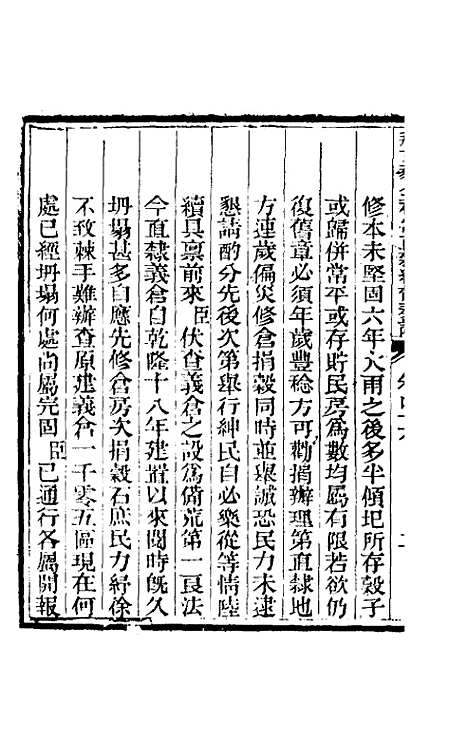 修本未堅固六年久雨之後多半傾圮所存穀子
或歸併常平或存貯民房為數均屬有限若欲仍
復舊章必須年歲豐稔方可勸捐辦理第直隸地
方連歲偏災修倉捐穀同時並舉誠恐民力未逮
懇請酌分先後次第舉行紳民自必樂從等情陸
續具稟前來臣伏查義倉之設為備荒第一良法
今直隸義倉自乾隆十八年建置以來閱時旣久
坍塌甚多自應先修倉房次捐穀石庶民力紓徐
不致棘手難辦查原建義倉一千零五區現在何
處已經坍塌何處尚屬完固臣已通行各屬開報